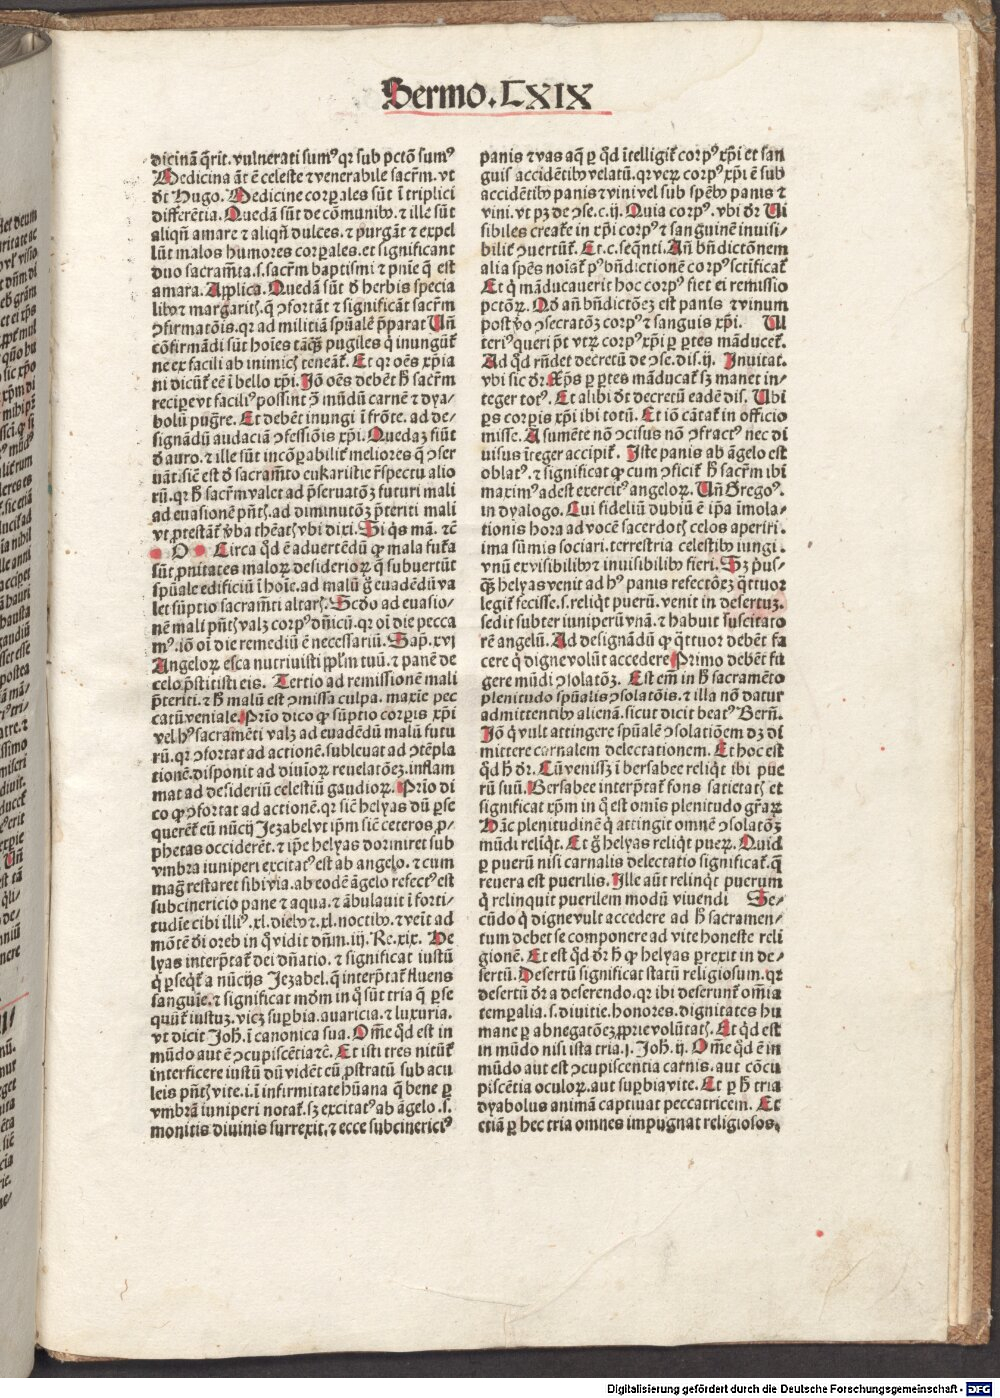 Sermo. LXIX
dicinā q̄rit. vulnerati sumꝰ qꝛ sub pctō sumꝰ
Medicina āt ē celeste ⁊ venerabile sacr̄m. vt
dt̄ Hugo. Medicine corꝑales sūt ī triplici
differētia. Quedā sūt de cōmunibꝰ. ⁊ ille sūt
aliqn̄ amare ⁊ aliqn̄ dulces. ⁊ purgāt ⁊ expel
lūt malos humores corꝑales. et significant
duo sacramt̄a. s. sacr̄m baptismi ⁊ pn̄ie q̄ est
amara. Applica. Quedā sūt d̄ herbis specia
libꝰ ⁊ margaritꝭ. q̄ ꝯfortāt ⁊ significāt sacr̄m
ꝯfirmatōis. qꝛ ad militiā spūalē p̄parat Un̄
cōfirmādi sūt hoīes tāꝙ̄ pugiles q̄ inungūt᷑
ne ex facili ab inimicꝭ teneāt᷑. Et qꝛ oēs xp̄ia
ni dicūt᷑ eē ī bello xp̄i. Jō oēs debēt h̄ sacr̄m
reciꝑe vt faciliꝰ possint ꝓ̄ mūdū carnē ⁊ dya/
bolū puḡre. Et debēt inungi ī frōte. ad de/
signādū audaciā ꝯfessiōis xp̄i. Quedaꝫ fiūt
d̄ auro. ⁊ ille sūt incōꝑabilit᷑ meliores q̄ ꝯser
uāt. sic̄ est d̄ sacram̄to eukaristie r̄spectu alio
rū. qꝛ h̄ sacr̄m valet ad p̄seruatōꝫ futuri mali
ad euasionē pn̄tꝭ. ad diminutōꝫ p̄teriti mali
vt ꝓtestāt᷑ v̄ba thēatꝭ vbi dixi. Si qs mā. ⁊c̄
O Circa qd̄ ē aduertēdū ꝙ mala fut᷑a
sūt ꝓnitates maloꝝ desiderioꝝ q̄ subuertūt
spūale edificiū ī hoīe. ad malū g̊ euadēdū va
let sūptio sacram̄ti altarꝭ. Scd̄o ad euasio/
nē mali pn̄tꝭ valꝫ corpꝰ dn̄icū. qꝛ oī die pecca
mꝰ. iō oī die remediū ē necessariū. Sap. xvj
Angeloꝝ esca nutriuisti pp̄lm tuū. ⁊ panē de
celo p̄stitisti eis. Tertio ad remissionē mali
p̄teriti. ⁊ h̄ malū est ꝯmissa culpa. maxie pec
catū veniale. Prīo dico ꝙ sūptio corpis xp̄i
vel hꝰ sacramēti valꝫ ad euadēdū malū futu
rū. qꝛ ꝯfortat ad actionē. subleuat ad ꝯtēpla
tionē. disponit ad diuinoꝝ reuelatōeꝫ. inflam
mat ad desideriū celestiū gaudioꝝ. Prīo di
co ꝙ ꝯfortat ad actionē. qꝛ sic̄ helyas dū ꝑse
querēt᷑ eū nūcij Jezabel vt ip̄m sic̄ ceteros ꝓ/
phetas occiderēt. ⁊ ip̄e helyas dormiret sub
vmbra iuniperi excitatꝰ est ab angelo. ⁊ cum
maḡ restaret sibi via. ab eodē āgelo refectꝰ est
subcinericio pane ⁊ aqua. ⁊ ābulauit ī forti/
tudīe cibi illiꝰ. xl. diebꝰ ⁊ xl. noctibꝰ. ⁊ veīt ad
mōtē d̄i oreb in q̄ vidit dn̄m. iij. Re. xix. He
lyas interp̄tat᷑ dei dn̄atio. ⁊ significat iustū
q̄ ꝑseqt᷑ a nūcijs Jezabel. q̄ interp̄tat᷑ fluens
sanguīe. ⁊ significat mdm̄ in q̄ sūt tria q̄ ꝑse
quūt᷑ iustuꝫ. vicꝫ suꝑbia. auaricia. ⁊ luxuria.
vt dicit Joh̄. ī canonica sua. Om̄e qd̄ est in
mūdo aut ē ꝯcupiscētia ⁊c̄. Et isti tres nitūt᷑
interficere iustū dū vidēt eū ꝓstratū sub acu
leis pn̄tꝭ vite. i. ī infirmitate hūana q̄ bene ꝑ
vmbrā iuniperi notat᷑. sꝫ excitatꝰ ab āgelo. s.
monitis diuinis surrexit. ⁊ ecce subcinericiꝰ
panis ⁊ vas aq̄ ꝑ qd̄ ītelligit᷑ corpꝰ xp̄i et san
guis accidētibꝰ velatū. qꝛ veꝝ corpꝰ xp̄i ē sub
accidētibꝰ panis ⁊ vini vel sub spēbꝰ panis ⁊
vini. vt pꝫ de ꝯse. c. ij. Quia corpꝰ. vbi dr̄ Ui
sibiles creat᷑e in xp̄i corpꝰ ⁊ sanguinē inuisi/
bilit᷑ ꝯuertūt᷑. Et. c. seq̄nti. An̄ bn̄dictōnem
alia spēs noīat᷑ pꝰ bn̄dictionē corpꝰ sctificat᷑
Et q̄ māducauerit hoc corpꝰ fiet ei remissio
pctōꝝ. Qd̄ an̄ bn̄dictōeꝫ est panis ⁊ vinum
post v̄o ꝯsecratōꝫ corpꝰ ⁊ sanguis xp̄i. Ul
teriꝰ queri pt̄ vtꝝ corpꝰ xp̄i ꝑ ꝑtes māducet᷑.
Ad qd̄ rn̄det decretū de ꝯse. dis. ij. Inuitat.
vbi sic dr̄. Xp̄s ꝑ ꝑtes māducat᷑ sꝫ manet in/
teger totꝰ. Et alibi dt̄ decretū eadē dis. Ubi
ꝑs corpis xp̄i ibi totū. Et iō cātat᷑ in officio
misse. A sumēte nō ꝯcisus nō ꝯfractꝰ nec di
uisus īteger accipit᷑. Iste panis ab āgelo est
oblatꝰ. ⁊ significat ꝙ cum ꝯficit᷑ h̄ sacr̄m ibi
maximꝰ adest exercitꝰ angeloꝝ. Un̄ Gregoꝰ.
in dyalogo. Cui fideliū dubiū ē ip̄a īmola/
tionis hora ad vocē sacerdotꝭ celos aperiri.
ima sūmis sociari. terrestria celestibꝰ iungi.
vnū ex visibilibꝰ ⁊ inuisibilibꝰ fieri. Sꝫ pꝰus/
ꝙ̄ helyas venit ad hꝰ panis refectōeꝫ q̄ttuor
legit᷑ fecisse. s. reliqt puerū. venit in desertuꝫ.
sedit subter iuniperū vnā. ⁊ habuit suscitato
rē angelū. Ad designādū ꝙ q̄ttuor debēt fa
cere q̄ digne volūt accedere Primo debēt fu
gere mūdi ꝯsolatōꝫ. Est em̄ in h̄ sacramēto
plenitudo spūalis ꝯsolatōis. ⁊ illa nō datur
admittentibꝰ alienā. sicut dicit beatꝰ Bern̄.
Jō q̄ vult attingere spūalē ꝯsolatiōem dꝫ di
mittere carnalem delectationem. Et hoc est
qd̄ h̄ dr̄. Cū venissꝫ ī bersabee reliqt ibi pue
rū suū. Bersabee interp̄tat᷑ fons satietatꝭ et
significat xp̄m in q̄ est omnis plenitudo gr̄aꝝ
Hāc plenitudinē q̄ attingit omnē ꝯsolatōꝫ
mūdi reliqt. Et g̊ helyas reliqt pueꝝ. Quid
ꝑ puerū nisi carnalis delectatio significat᷑. q̄
reuera est puerilis. Ille aūt relinqt puerum
q̄ relinquit puerilem modū viuendi Se/
cūdo q̄ digne vult accedere ad h̄ sacramen/
tum debet se componere ad vite honeste reli
gionē. Et est qd̄ dr̄ h̄ ꝙ helyas ꝑrexit in de/
sertū. Desertū significat statū religiosum. qꝛ
desertū dr̄ a deserendo. qꝛ ibi deserunt᷑ om̄ia
temꝑalia. s. diuitie. honores. dignitates hu
mane ꝑ abnegatōeꝫ ꝓprie volūtatꝭ. Et qd̄ est
in mūdo nisi ista tria. j. Joh̄. ij. Om̄e qd̄ ē in
mūdo aut est ꝯcupiscentia carnis. aut cōcu
piscētia oculoꝝ. aut suꝑbia vite. Et ꝑ h̄ tria
dyabolus animā captiuat peccatricem. Et
etiā ꝑ hec tria omnes impugnat religiosos.
Digitalisierung gefördert durch die Deutsche Forschungsgemeinschaft - DFG